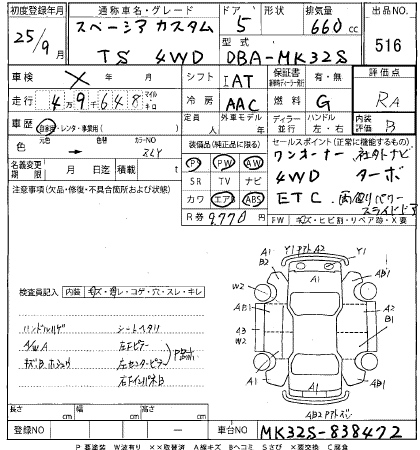 初度登録年月 通称車名・グレード ドア 形状 排気量 出品No.
25/9月 スペーシア カスタム 5 660cc 516
TS 4WD 型式 DBA-MK32S
車検 × 年 月 シフト IAT 保証書 有・無 評価点
走行 4万9千648 マイル キロ 冷房 AAC 燃料 G RA
車歴 自家用・レンタ・事業用( ) 定員 人 外車モデル 年 ディーラー 並行 ハンドル 左・右 内装評価 B
色 元色 → 色替 カラーNo. ZLY 装備品(純正品に限る) セールスポイント(正常に機能するもの)
PS PW AW ワンオーナー 社外ナビ
名義変更期限 月 日迄 積載 t SR TV ナビ 4WD ターボ
注意事項(欠品・修復・不具合箇所および状態) カワ エアB ABS ETC 両側パワースライドドア
R券 9,770円 FW キズ・ヒビ割・リペア跡・X要
検査員記入 内装 キズ・汚レ・コゲ・穴・スレ・キレ
ハンドルハゲ シートヘタリ
A/W A 左Fピラー
左センターピラー
A1 B2 Y1 A2 Y1 A1
W2 AB1
AB1 A1 A2 B2
A3 W2 A1
A1 A1 AB1
長さ cm 幅 cm 高さ cm
登録No. － 車台No. MK32S-838472
P要塗装 W波有り ××取替済 A線キズ Bヘコミ Sさび ×要交換 C腐食